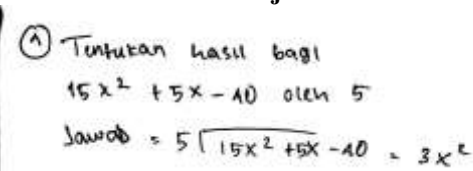 ① Tentukan hasil bagi
15x² + 5x - 10 oleh 5
Jawab = 5√15x² +5x -10 = 3x²